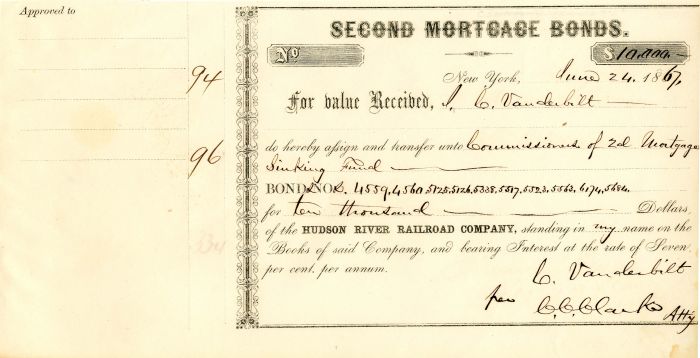 Approved to
94
96
SECOND MORTGAGE BONDS.
No
$ 10,000.—
New York, June 24. 1867.
For value Received, I, C. Vanderbilt
do hereby assign and transfer unto Commissioners of 2d Mortgage
Sinking Fund
BOND NOS. 4559, 4560, 5125, 5126, 5338, 5517, 5523, 5563, 6174, 5684.
for ten thousand Dollars,
of the HUDSON RIVER RAILROAD COMPANY, standing in my name on the
Books of said Company, and bearing Interest at the rate of Seven
per cent. per annum.
C. Vanderbilt
per C.C. Clarke Atty